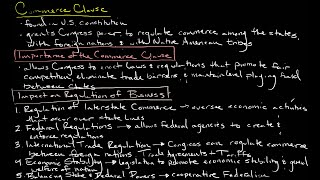 Commerce Clause
- found in U.S. constitution
- grants Congress power to regulate commerce among the states,
with foreign nations & with Native American tribes
Importance of the Commerce Clause
- allows Congress to enact laws & regulations that promote fair
competition, eliminate trade barriers, & maintain level playing field
between states
Impact on Regulation of Business
1. Regulation of Interstate Commerce → oversee economic activities
that occur over state lines
2. Federal Regulations → allow federal agencies to create &
enforce regulations
3. International Trade Regulation → Congress can regulate commerce
between foreign nations Trade Agreements + Tariffs
4. Economic Stability → legislation to promote economic stability &
welfare of nation
5. Balancing State & Federal Powers → cooperative Federalism